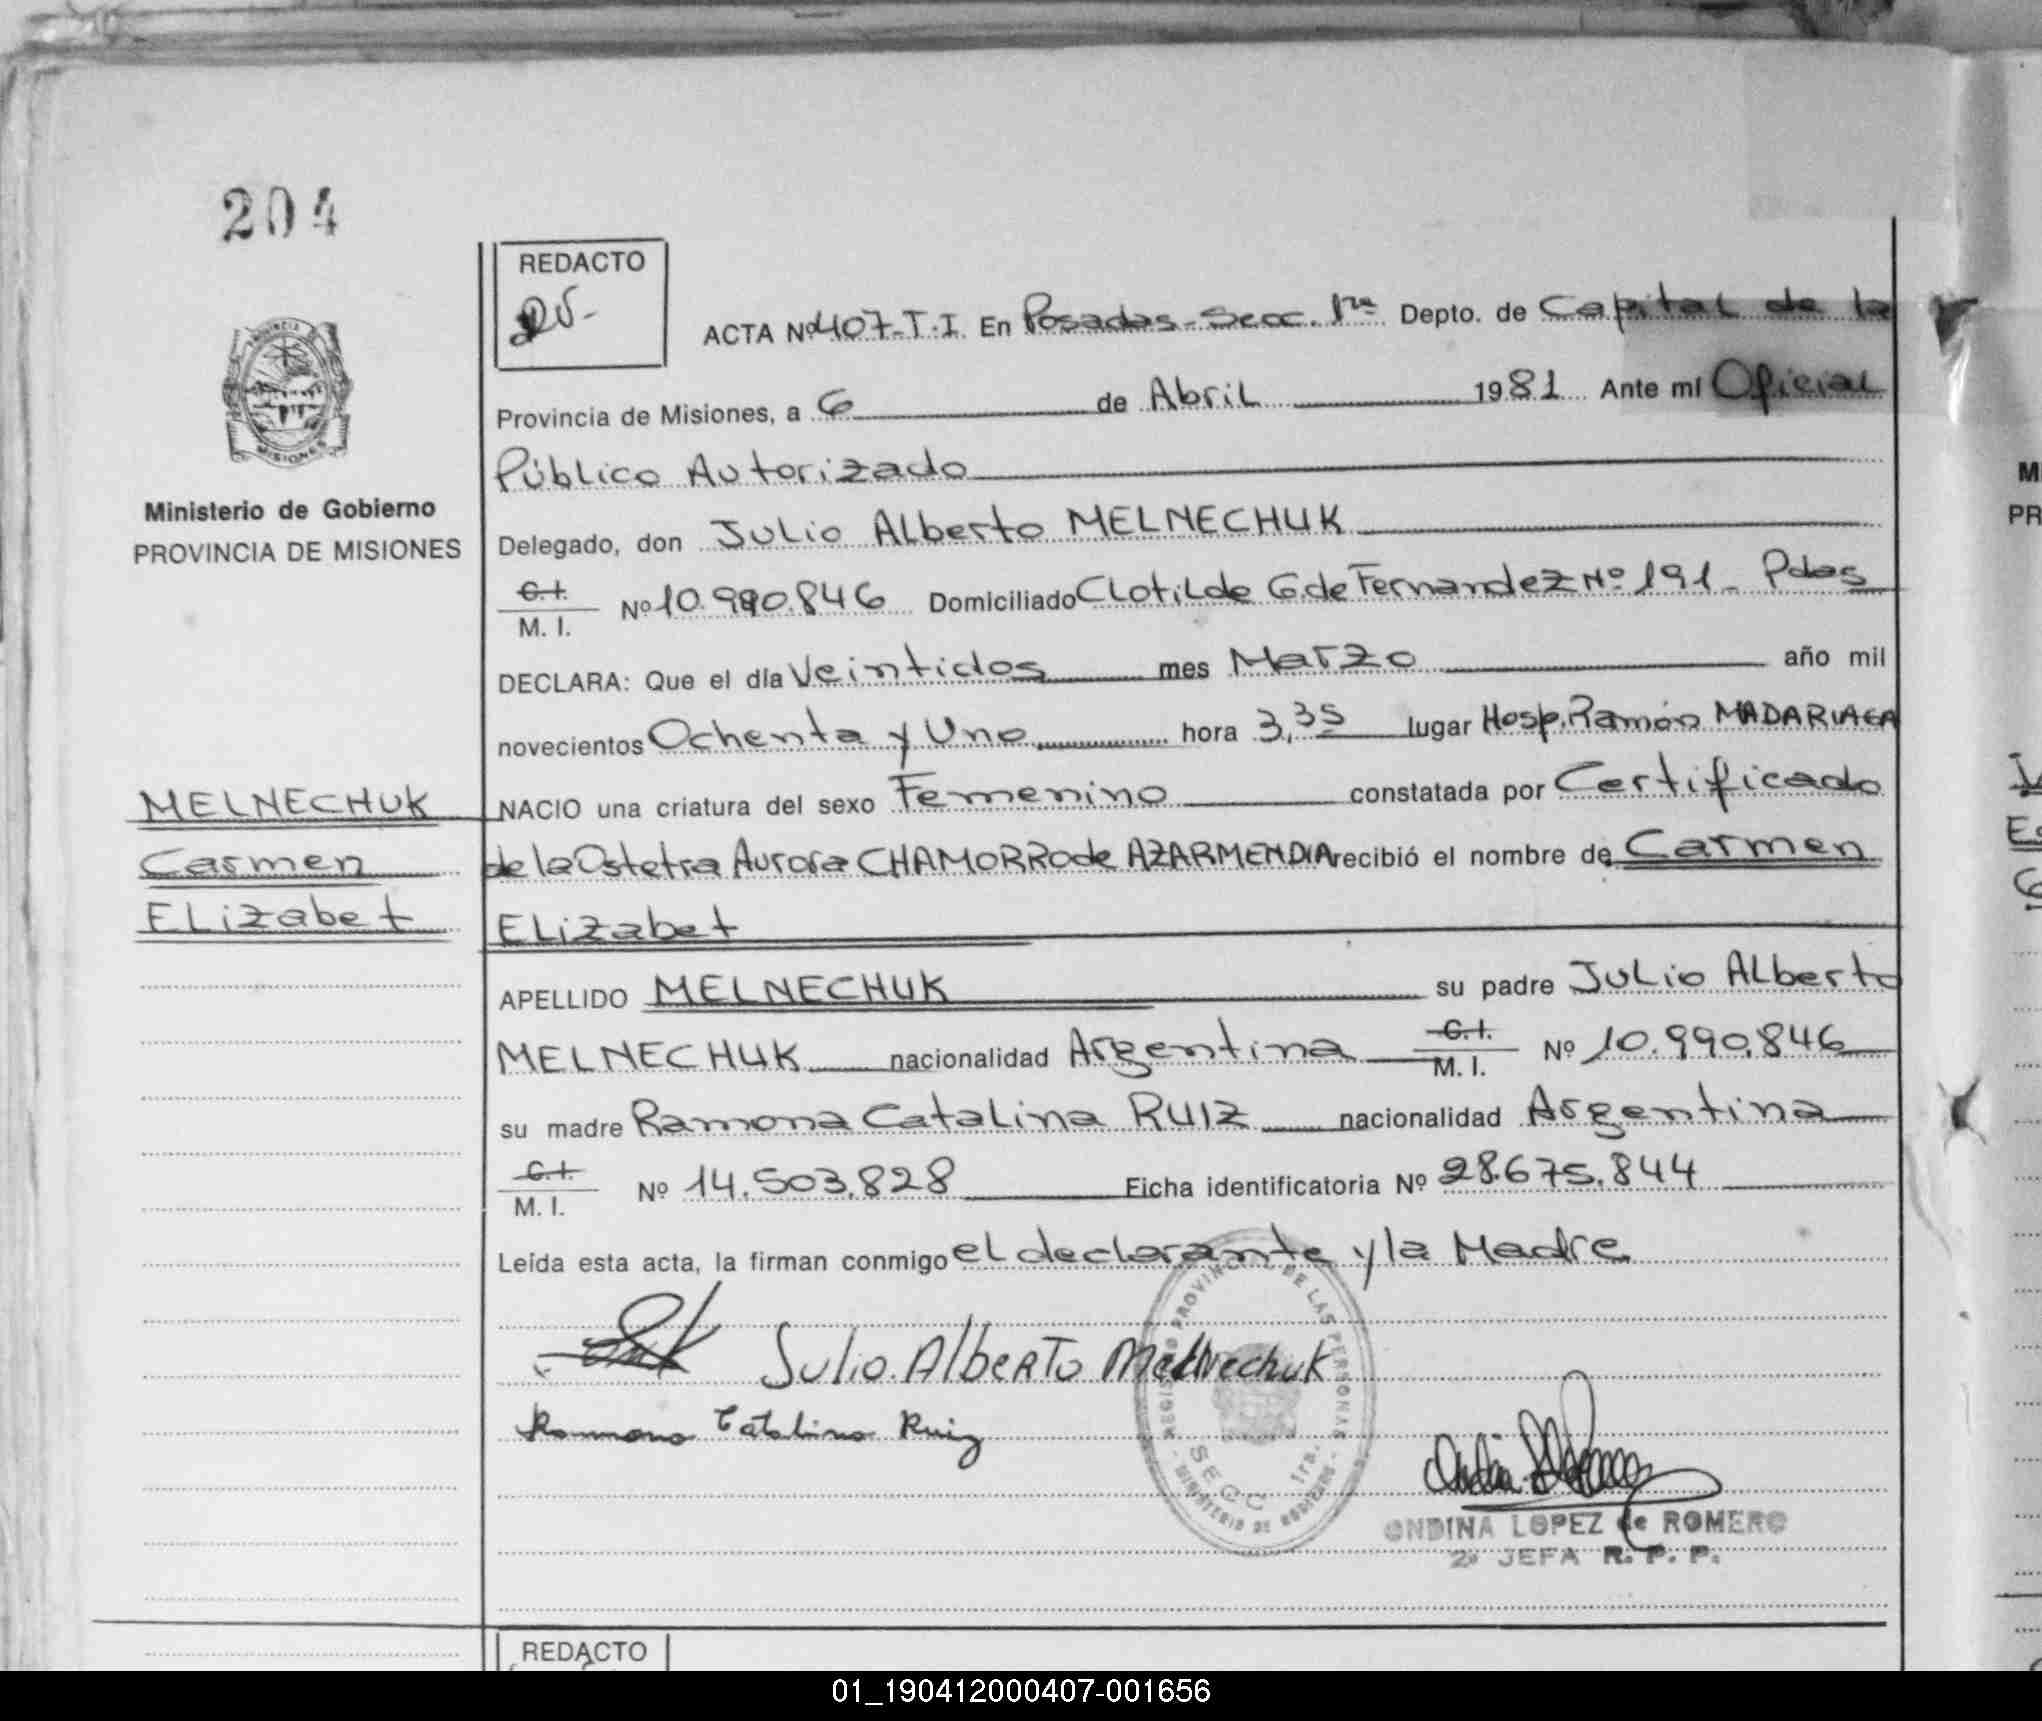 204
REDACTO
ACTA Nº 407-T.I. En Posadas-Secc. 1ra Depto. de Capital de la
Provincia de Misiones, a 6 de Abril 1981 Ante mí Oficial
Público Autorizado
Delegado, don Julio Alberto MELNECHUK
C.I.
M. I. Nº 10.990.846 Domiciliado Clotilde G. de Fernandez Nº 191_ Pdas
DECLARA: Que el día Veintidos mes Marzo año mil
novecientos Ochenta y Uno hora 3,35 lugar Hosp. Ramón MADARIAGA
NACIO una criatura del sexo Femenino constatada por Certificado
de la Ostetra Aurora CHAMORRO de AZARMENDIA recibió el nombre de Carmen
ELizabet
APELLIDO MELNECHUK su padre Julio Alberto
MELNECHUK nacionalidad Argentina C.I.
M. I. Nº 10.990.846
su madre Ramona Catalina RUIZ nacionalidad Argentina
C.I.
M. I. Nº 14.503.828 Ficha identificatoria Nº 28.675.844
Leída esta acta, la firman conmigo el declarante y la Madre
Julio. Alberto Melnechuk
Ramona Catalina Ruiz
REGISTRO PROVINCIAL DE LAS PERSONAS
SECC 1ra.
- MINISTERIO DE GOBIERNO -
ONDINA LOPEZ de ROMERO
2ª JEFA R. P. P.
PROVINCIA
MISIONES
Ministerio de Gobierno
PROVINCIA DE MISIONES
MELNECHUK
Carmen
ELizabet
REDACTO
M
PR
01_190412000407-001656